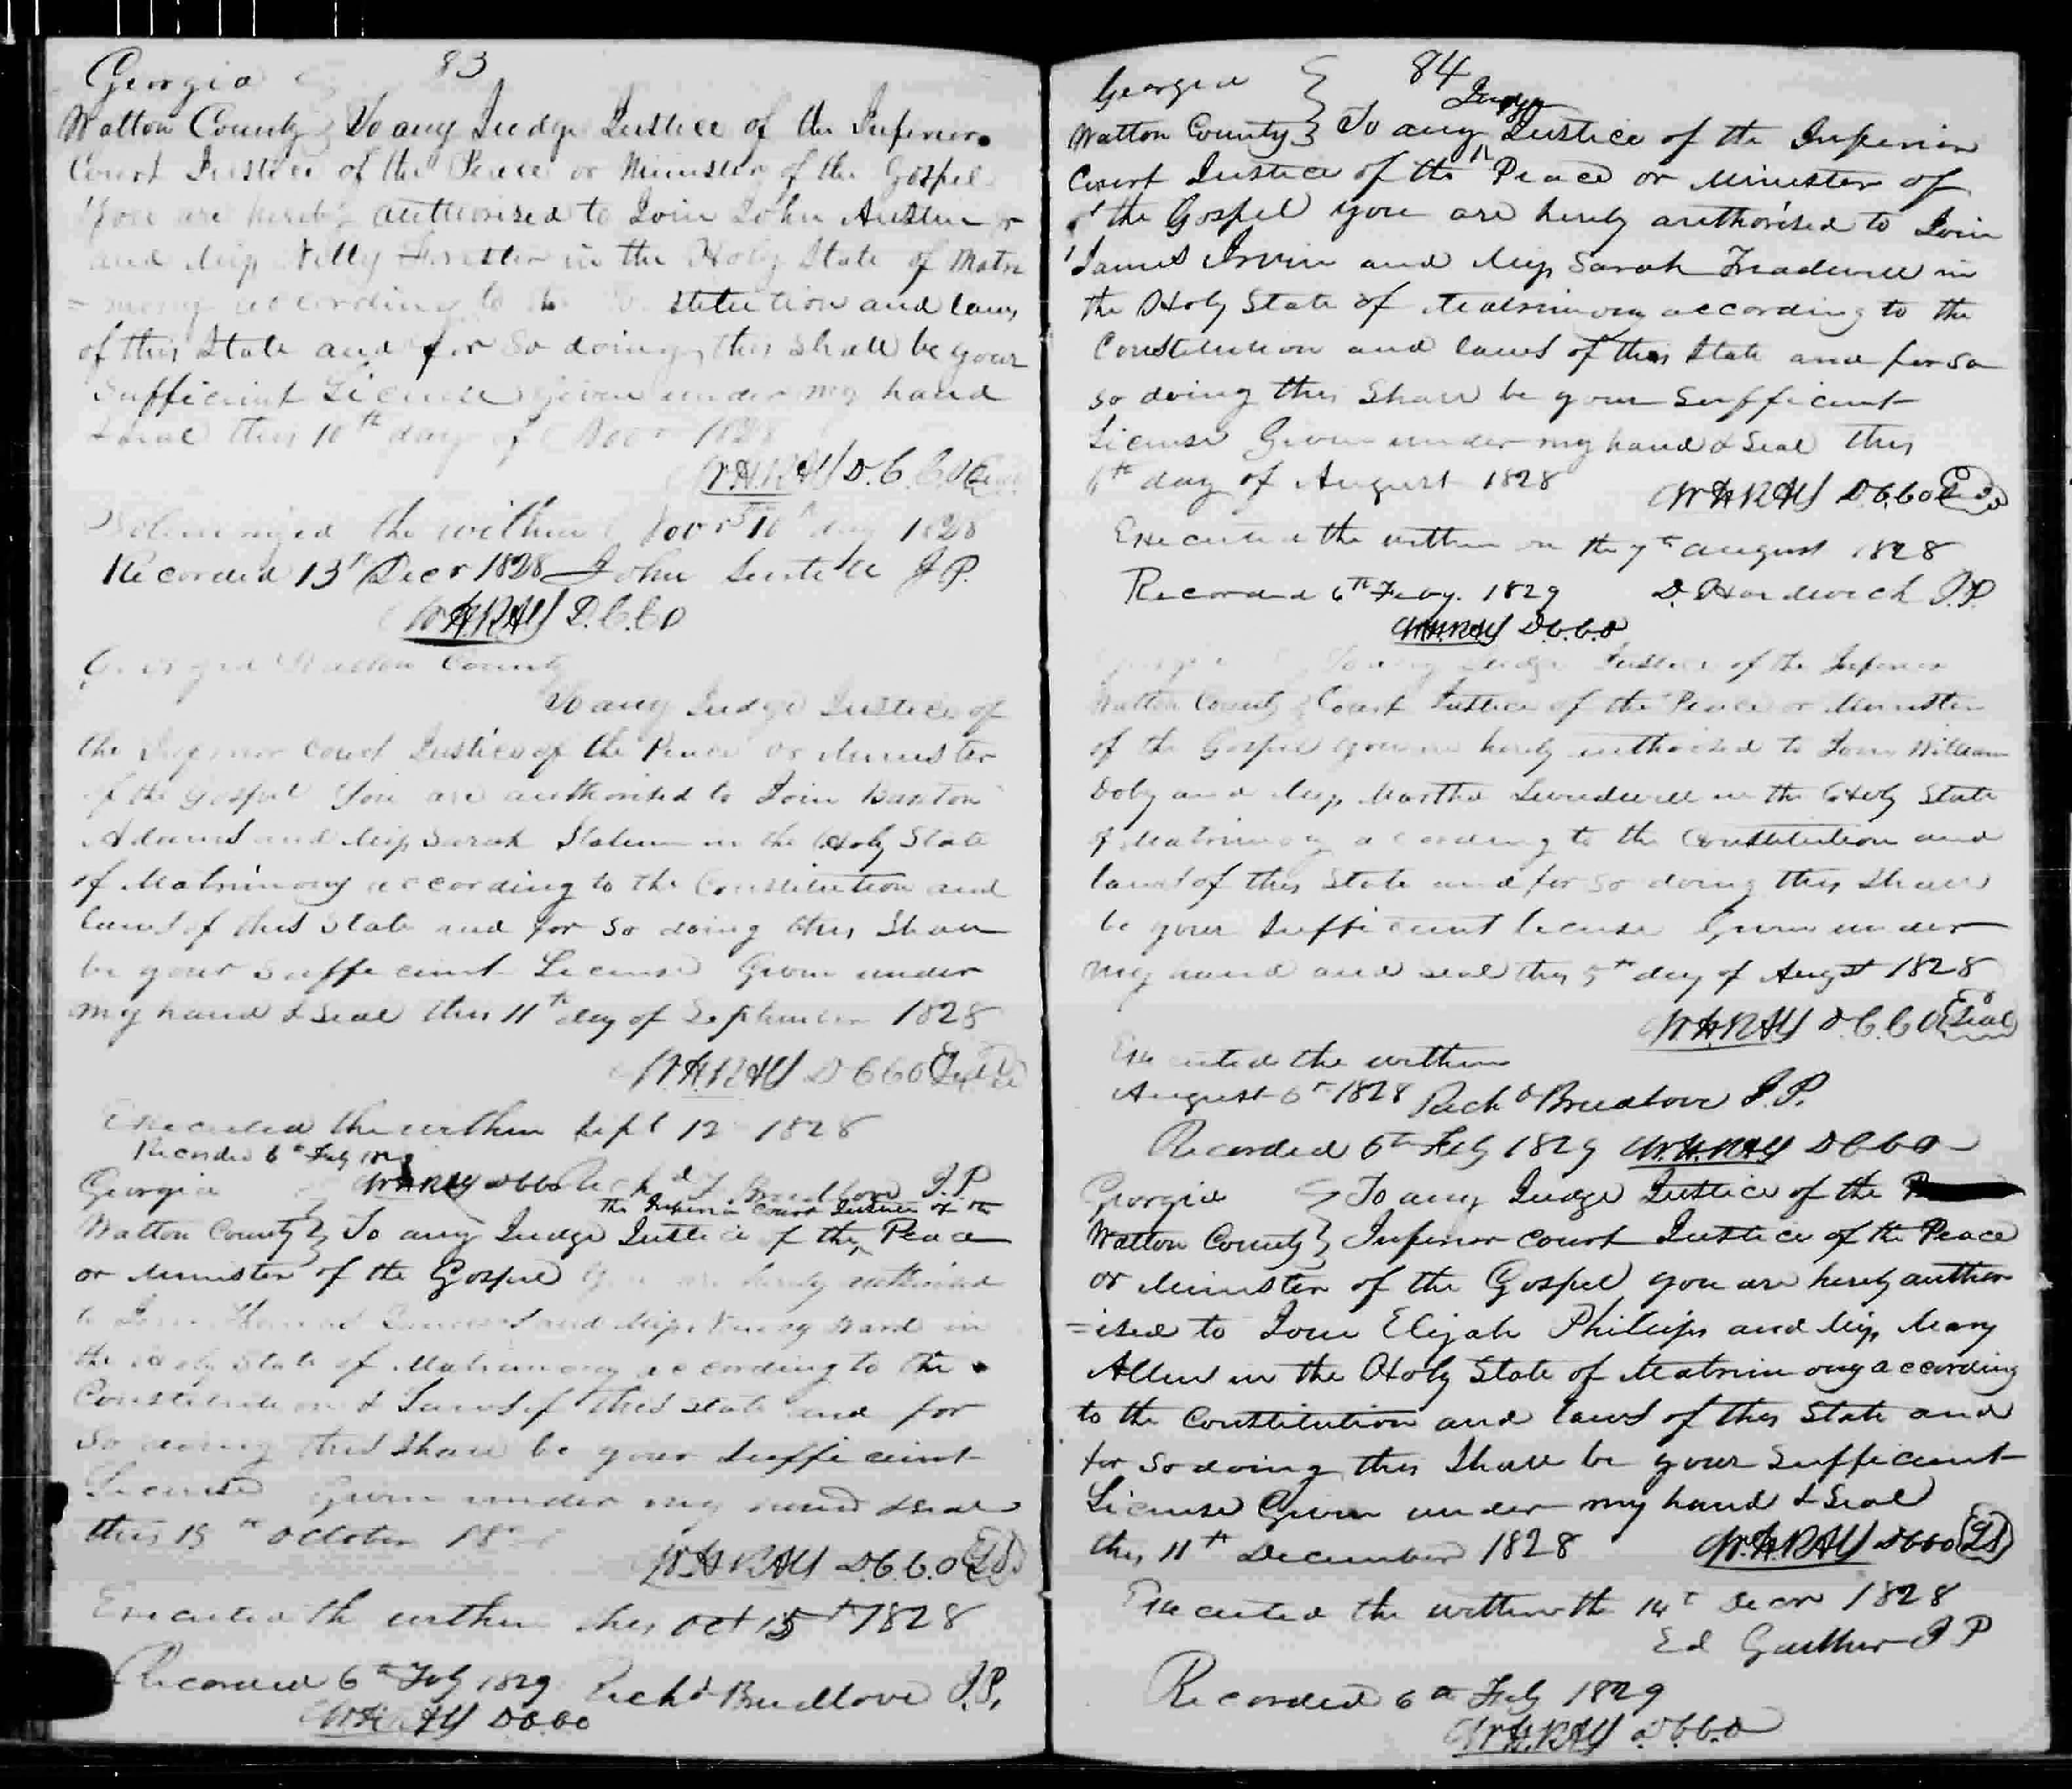 83
Georgia
Walton County } To any Judge Justice of the Inferior
Court Justice of the Peace or Minister of the Gospel
You are hereby authorised to Join John Austin
and Miss Nelly in the Holy State of Matri
= mony according to the stitution and laws
of this State and for so doing this Shall be your
Sufficient License given under my hand
& Seal this 10th day of Novr 1828
W.H. RAY D.C.C.O Seal
Solemnized the within Novr 10th day 1828
Recorded 13th Decr 1828 John J.P.
W.H. RAY D.C.C.O
Georgia Walton County
To any Judge Justice of
the Inferior Court Justice of the Peace or Minister
of the Gospel You are authorised to Join
Adams and Miss Sarah in the Holy State
of Matrimony according to the Constitution and
laws of this State and for so doing this Shall
be your Sufficient License Given under
my hand & Seal this 11th day of September 1828
W.H. RAY D.C.C.O
Executed the within Sept 12 1828
Recorded 6th Feby 1829
W.H. RAY D.C.C.O Richd Breedlove J.P
Georgia
the Inferior Court Justice of the
Walton County } To any Judge Justice of the ^ Peace
or Minister of the Gospel You are hereby authorised
to Join Thomas and Miss Nancy Ward in
the Holy State of Matrimony according to the
Constitution & Laws of this State and for
So doing this Shall be your Sufficient
License Given under my hand & Seal
this 15th October 18
W.H. RAY D.C.C.O LS
Executed the within this Oct 15th 1828
Recorded 6th Feby 1829 Richd Breedlove J.P.
W.H. RAY D.C.C.O
84
Georgia }
Judge
Walton County } To any ^ Justice of the Inferior
Court Justice of the Peace or Minister of
of the Gospel you are hereby authorised to Join
James Irvin and Miss Sarah Treadwell in
the Holy State of Matrimony according to the
Constitution and laws of this State and for so
so doing this Shall be your Sufficient
License Given under my hand & Seal this
6th day of August 1828 W.H. RAY D.C.C.O
Executed the within on the 7th August 1828
Recorded 6th Feby. 1829 D. Hardwick J.P.
W.H. RAY D.C.C.O
Georgia } To any Judge Justice of the Inferior
Walton County } Court Justice of the Peace or Minister
of the Gospel you are hereby authorised to Join William
Doby and Miss Martha in the Holy State
of Matrimony according to the Constitution and
laws of this State and for so doing this Shall
be your Sufficient license Given under
my hand and seal this 5th day of Augst 1828
W.H. RAY D.C.C.O Seal
Executed the within
August 6th 1828 Richd Breedlove J.P.
Recorded 6th Feby 1829 W.H. RAY D.C.C.O
Georgia } To any Judge Justice of the
Walton County } Inferior Court Justice of the Peace
or Minister of the Gospel you are hereby author
=ised to Join Elijah Phillips and Miss Mary
Allen in the Holy State of Matrimony according
to the Constitution and laws of this State and
for so doing this Shall be your Sufficient
License Given under my hand & Seal
this 11th December 1828 W.H. RAY D.C.C.O LS
Executed the within the 14th Decr 1828
Ed Gaither J P
Recorded 6th Feby 1829
W.H. RAY D.C.C.O